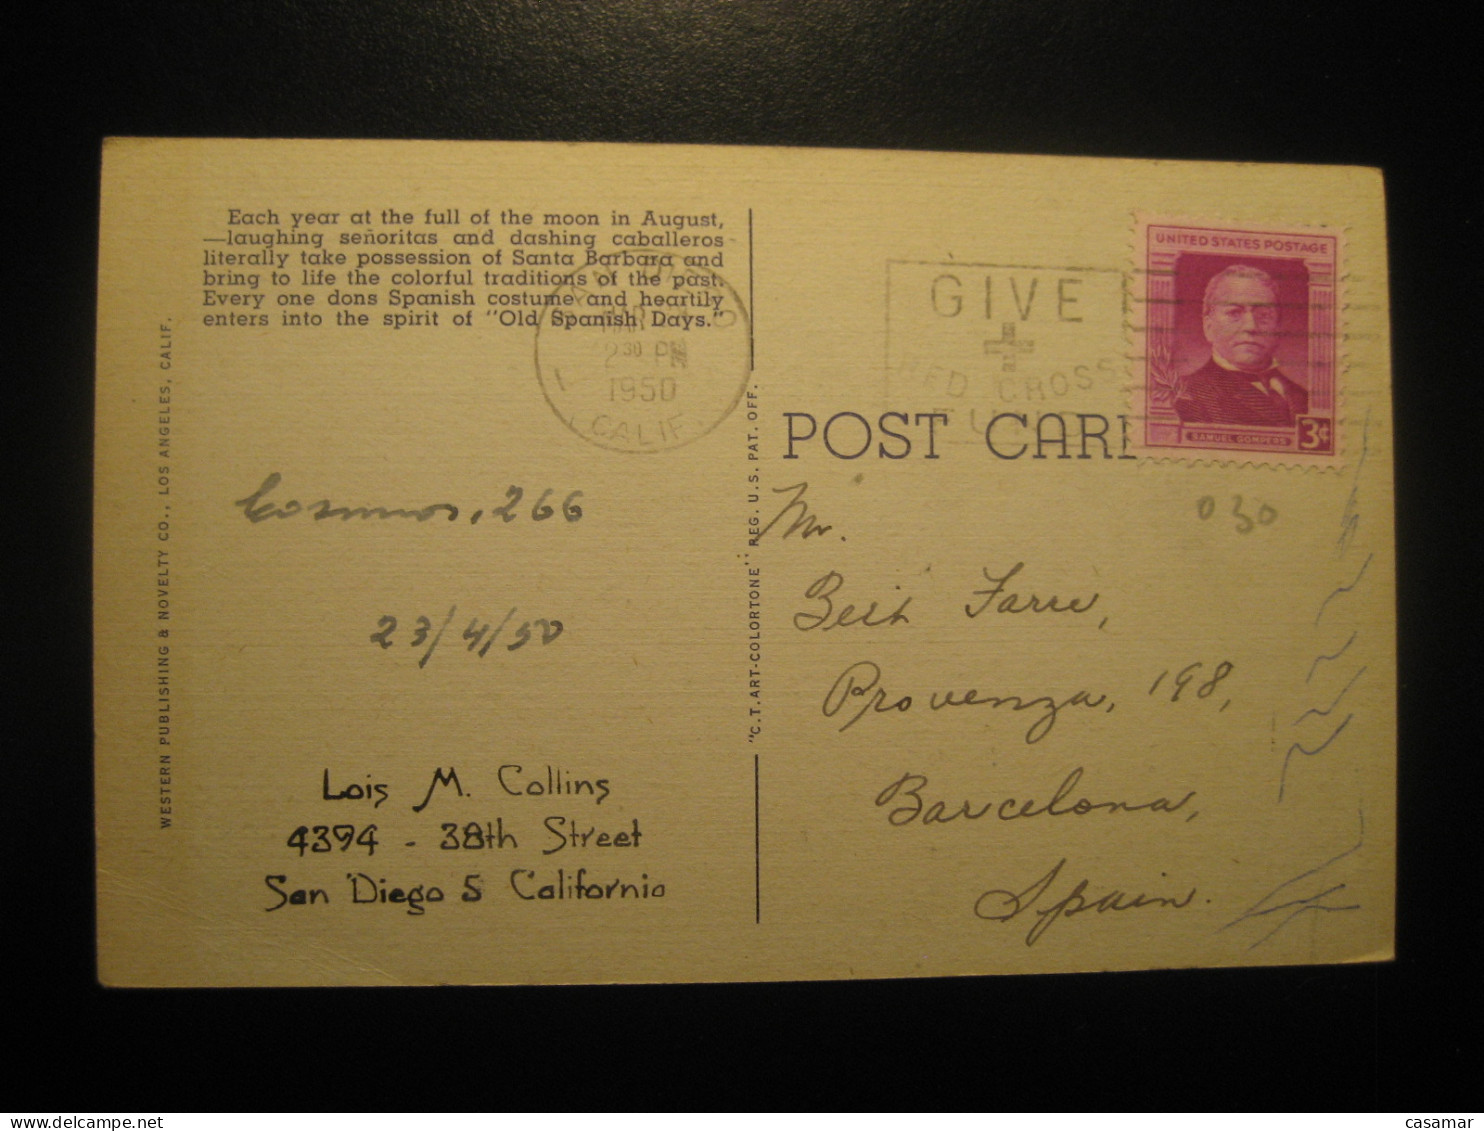 Each year at the full of the moon in August,
—laughing señoritas and dashing caballeros
literally take possession of Santa Barbara and
bring to life the colorful traditions of the past.
Every one dons Spanish costume and heartily
enters into the spirit of "Old Spanish Days."
WESTERN PUBLISHING & NOVELTY CO., LOS ANGELES, CALIF.
SAN DIEGO
MAR
2 30 PM
1950
CALIF
Cosmos, 266
23/4/50
Lois M. Collins
4394 - 38th Street
San Diego 5 California
"C.T. ART-COLORTONE" REG. U.S. PAT. OFF.
GIVE
RED CROSS
FUND
UNITED STATES POSTAGE
SAMUEL GOMPERS
3¢
POST CARD
030
Mr.
Farre,
Provenza, 198,
Barcelona,
Spain.
casamar